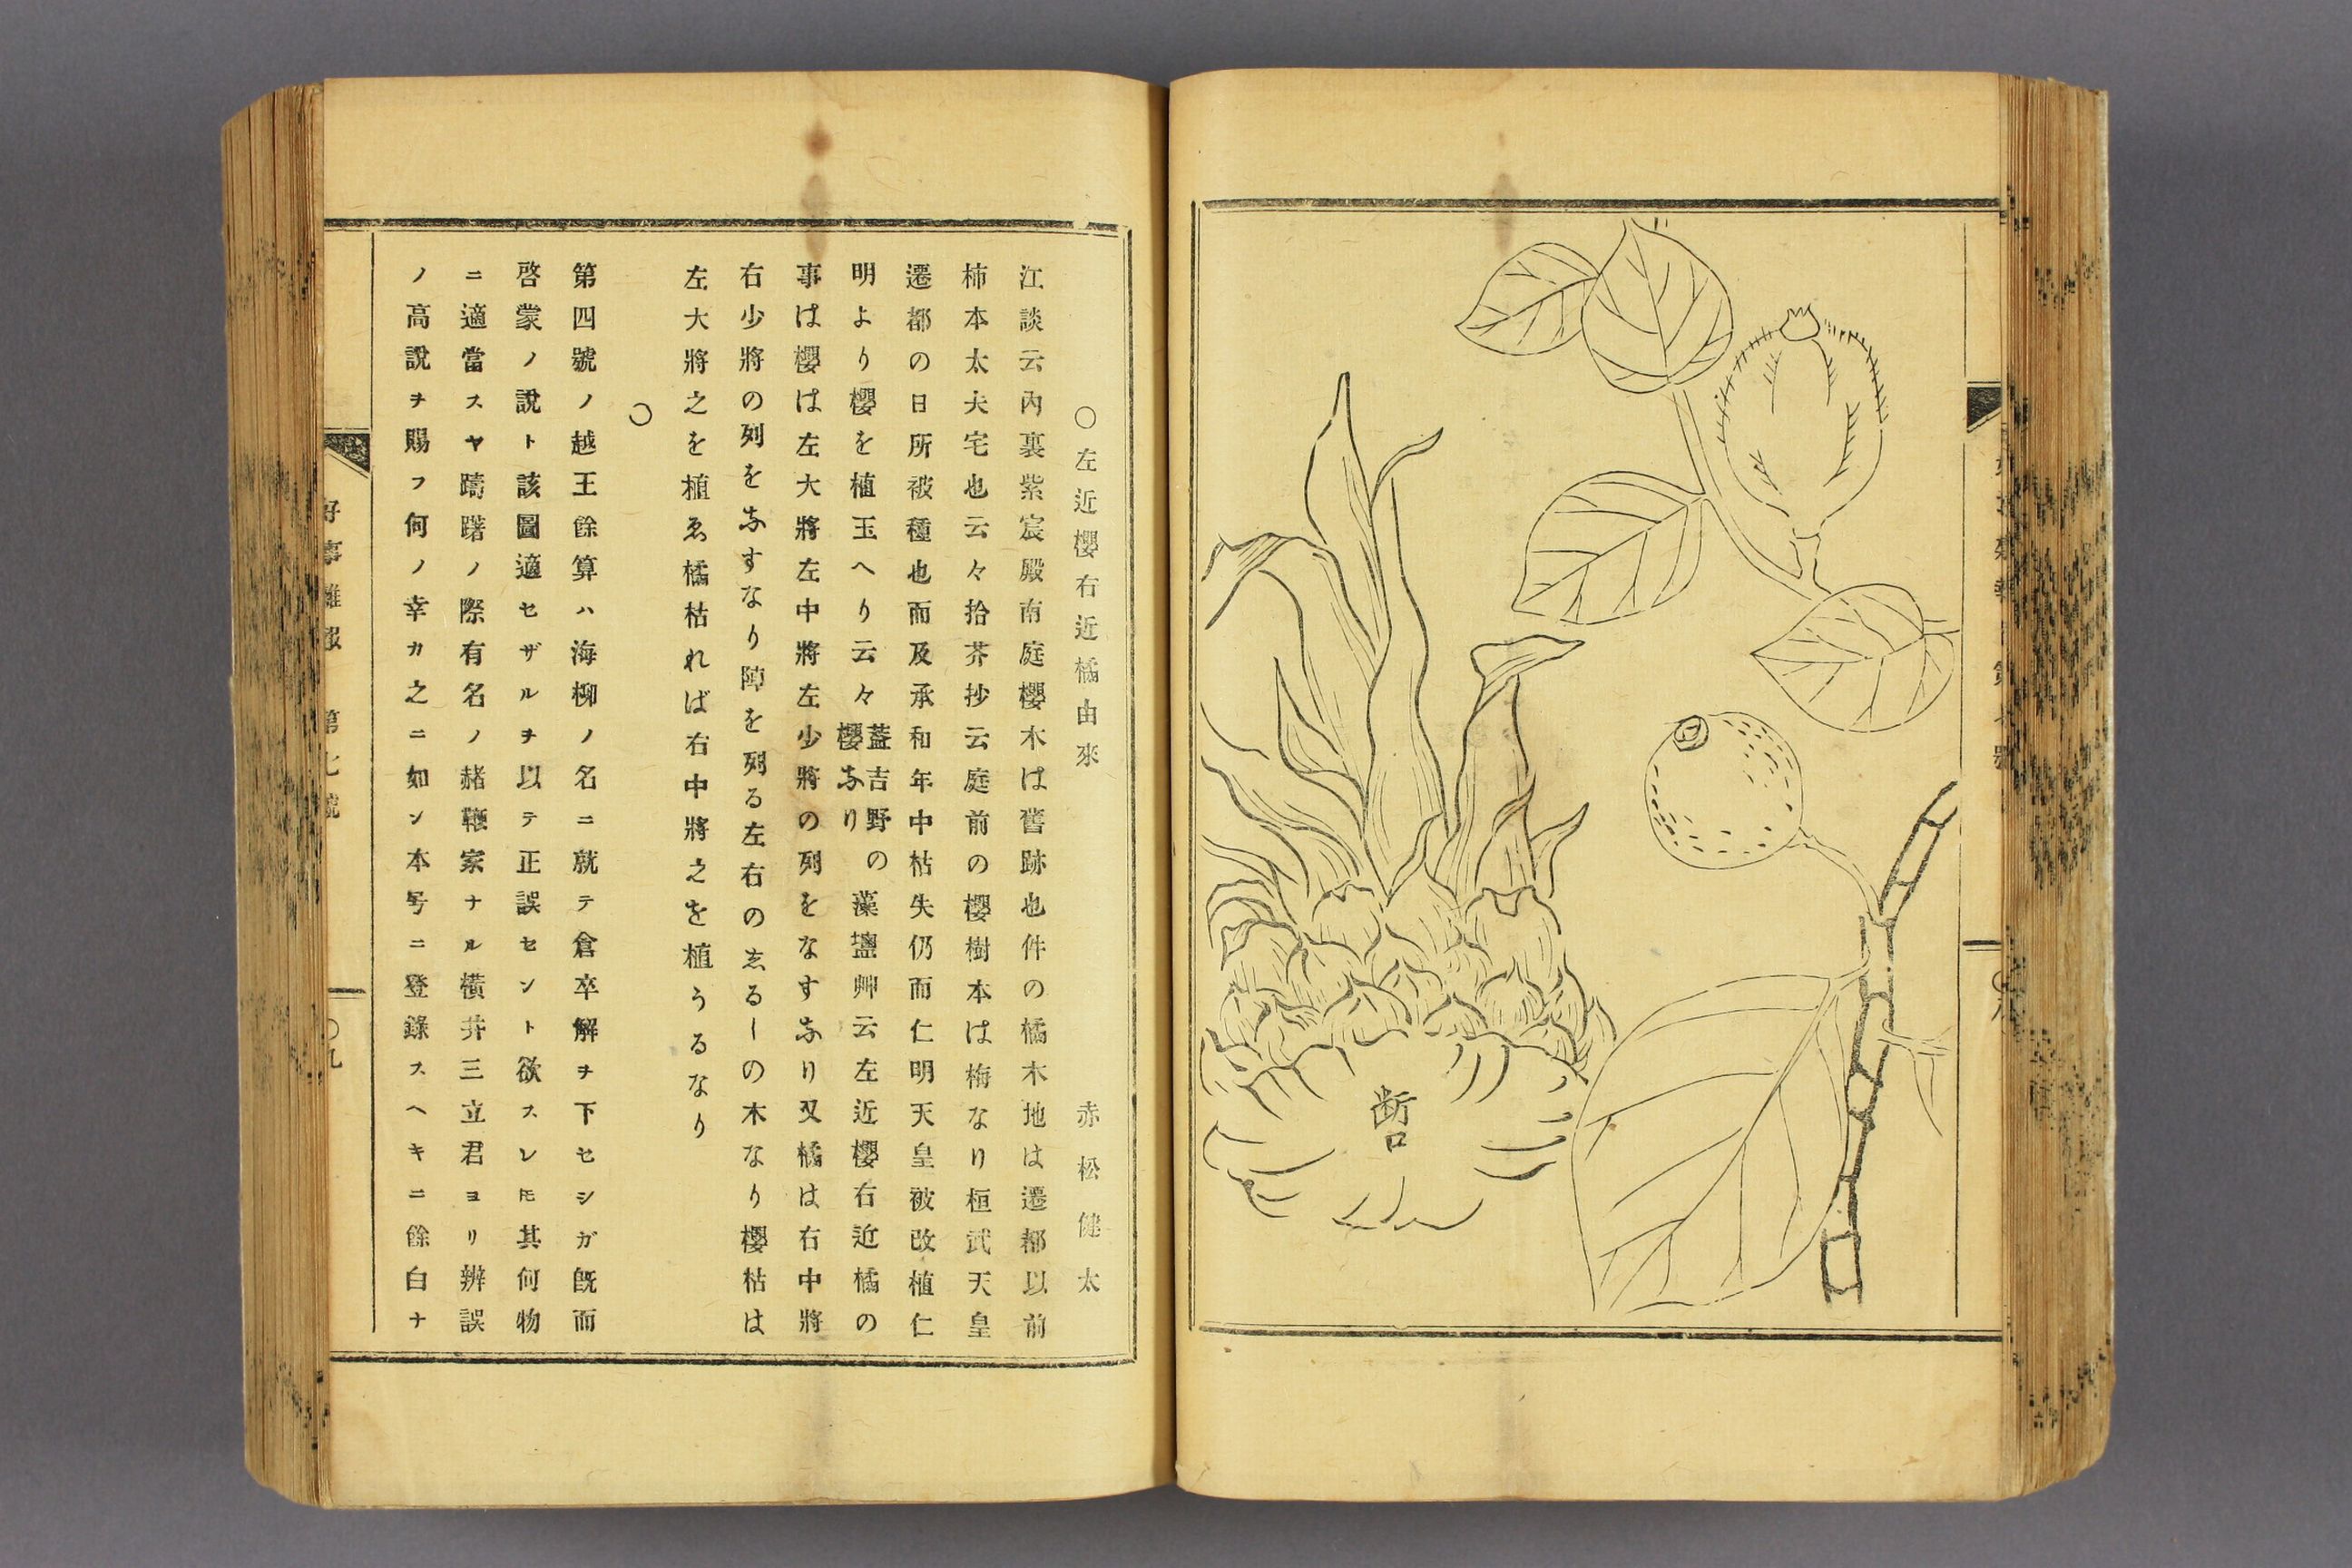 断口
○左近櫻右近橘由來
赤松健太
江談云內裏紫宸殿南庭櫻木ば舊跡也件の橘木地は遷都以前
柿本太夫宅也云々拾芥抄云庭前の櫻樹本ば梅なり桓武天皇
遷都の日所被種也而及承和年中枯失仍而仁明天皇被改植仁
明より櫻を植玉へり云々
葢吉野の
櫻なり
藻鹽艸云左近櫻右近橘の
事ば櫻ば左大將左中將左少將の列をなすなり又橘は右中將
右少將の列をなすなり陣を列る左右のゑるーの木なり櫻枯は
左大將之を植ゑ橘枯れば右中將之を植うるなり
○
第四號ノ越王餘算ハ海柳ノ名ニ就テ倉卒解ヲ下セシガ旣而
啓蒙ノ說ト該圖適セザルヲ以テ正誤セントスレ𪜈其何物
ニ適當スヤ躊躇ノ際有名ノ赭鞭家ナル橫井三立君ヨリ辨誤
ノ高說ヲ賜フ何ノ幸カ之ニ如ン本号ニ登錄スヘキニ餘白ナ
好事雜報　第七號
〇九